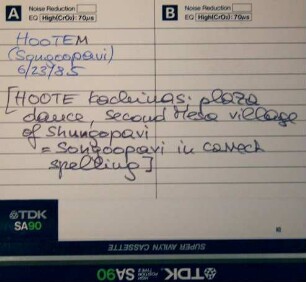 A Noise Reduction
EQ High(CrO2) 70µs
B Noise Reduction
EQ High(CrO2) 70µs
HOOTEM
(Songoopavi)
6/23/85
[HOOTE kachinas: plaza
dance, second Mesa village
of Shungopavi
= Songoopavi in correct
spelling]
TDK
SA90
SUPER AVILYN CASSETTE
TDK SA90
HIGH POSITION
TYPE II